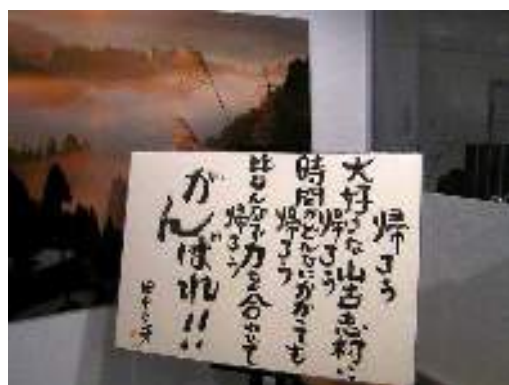 帰ろう
大好きな山古志村に
帰ろう
時間がどんなにかかっても
帰ろう
皆んなで力を合わせて
帰ろう
がんばれ!!